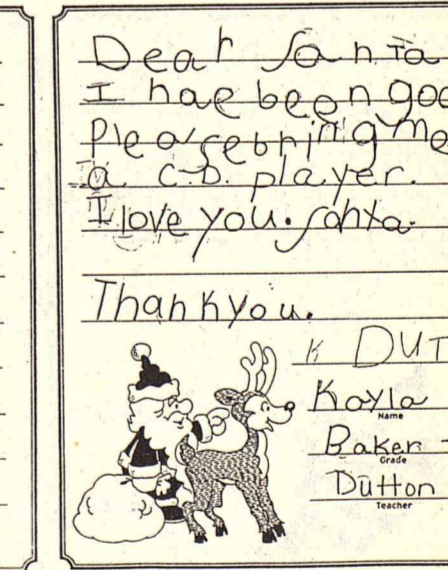 Dear Santa
I hae been goo
Please bring me
a C.D. player.
I love you. Santa.
Thank you.
K DUT
Kayla
Name
Baker
Grade
Dutton
Teacher